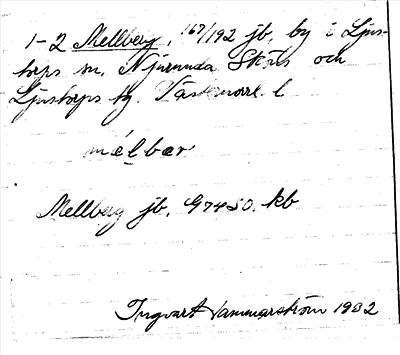 1-2 Mellberg, 167/192 jb, by i Ljus-
torps sn, Njurunda Sköns och
Ljustorps tg. Västernorrl. l
mélbær
Mellberg jb, G7450. kb
Ingvart Hammarström 1932